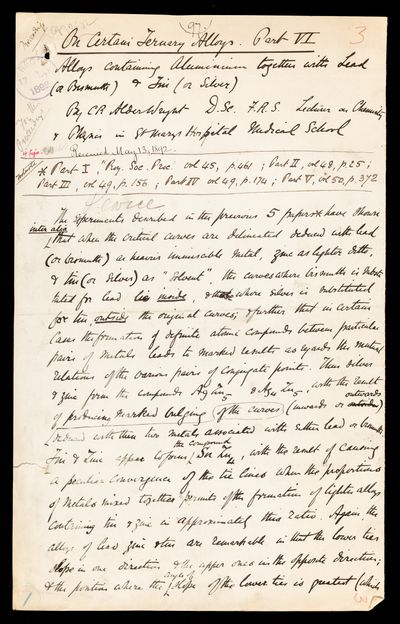 97
3
On Certain Ternary Alloys. Part VI
Alloys containing Aluminium together with Lead
(or Bismuth) & Tin (or Silver)
By C R Alder Wright D.Sc. F.R.S. Lecturer on Chemistry
& Physics in St Marys Hospital Medical School
Received May 13, 1892
* Part I, "Roy. Soc. Proc vol 45, p. 461; Part II, vol 48, p. 25;
Part III, vol 49, p. 156; Part IV vol 49, p. 174; Part V, vol 50, p. 372
The experiments described in the previous 5 papers* have shown
inter alia
that when the critical curves are delineated deduced with lead
(or bismuth) as heavier immiscible metal, zinc as lighter ditto,
& tin (or silver) as "solvent" the curves where bismuth is substi-
tuted for lead lie inside, & those where silver is substituted
for tin, outside the original curves; & further that in certain
cases the formation of definite atomic compounds between particular
pairs of metals leads to marked results as regards the mutual
relations of the various pairs of conjugate points. Thus silver
& zinc form the compounds Ag Zn5 & Ag4 Zn5, with the result
of producing marked bulging of the curves (inwards or outwards)
deduced with these two metals associated with either lead or bismuth
the compound
Tin & Zinc appear to form Sn Zn4, with the result of causing
a peculiar convergence of the tie lines when the proportions
of metals mixed together permits of the formation of lighter alloys
containing tin & zinc in approximately this ratio. Again the
alloys of lead zinc & tin are remarkable in that the lower ties
slope in one direction & the upper ones in the opposite direction;
& the position where the angle of slope of the lower ties is greatest (which